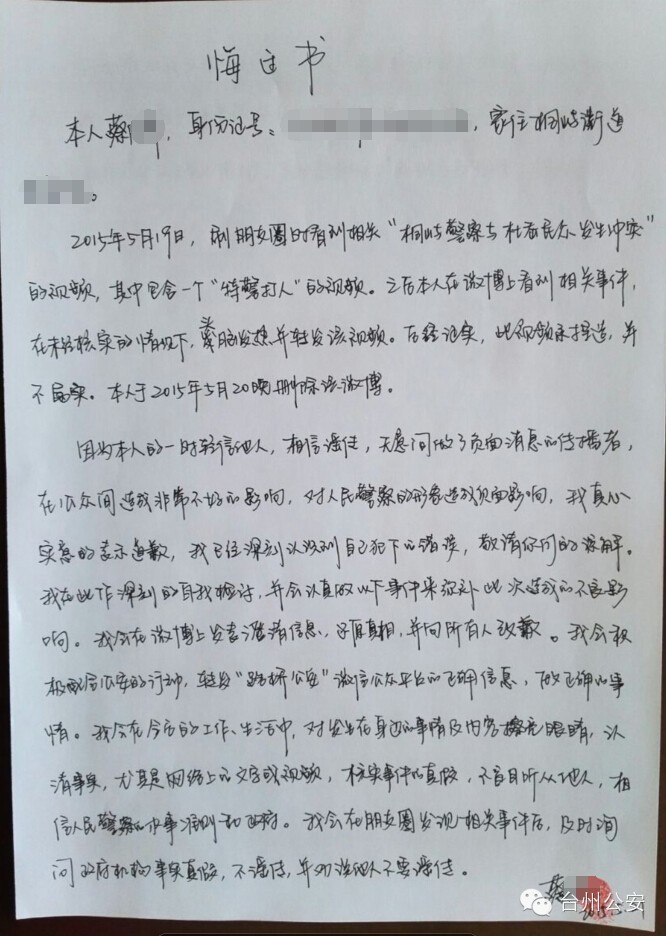 悔过书
本人蔡 ，身份证号： ，家住桐屿街道
。
2015年5月19日，刷朋友圈时看到相关“桐屿警察与杜岙民众发生冲突”
的视频，其中包含一个“特警打人”的视频。之后本人在微博上看到相关事件，
在未经核实的情况下，头脑发热并转发该视频。后经证实，此视频系捏造，并
不属实。本人于2015年5月20晚删除该微博。
因为本人的一时轻信他人，相信谣传，无意间做了负面消息的传播者，
在公众间造成非常不好的影响，对人民警察的形象造成负面影响，我真心
实意的表示道歉，我已经深刻认识到自己犯下的错误，敬请你们的谅解。
我在此作深刻的自我检讨，并会认真做以下事件来弥补此次造成的不良影
响。我会在微博上发表澄清信息，还原真相，并向所有人致歉。我会积
极配合公安的行动，转发“路桥公安”微信公众平台的正确信息，做正确的事
情。我会在今后的工作、生活中，对发生在身边的事情及内容擦亮眼睛，认
清事实，尤其是网络上的文字或视频，核实事件的真假，不盲目听从他人，相
信人民警察的办事准则和政府。我会在朋友圈发现相关事件后，及时询
问政府机构事实真假，不谣传，并劝说他人不要谣传。
蔡
台州公安